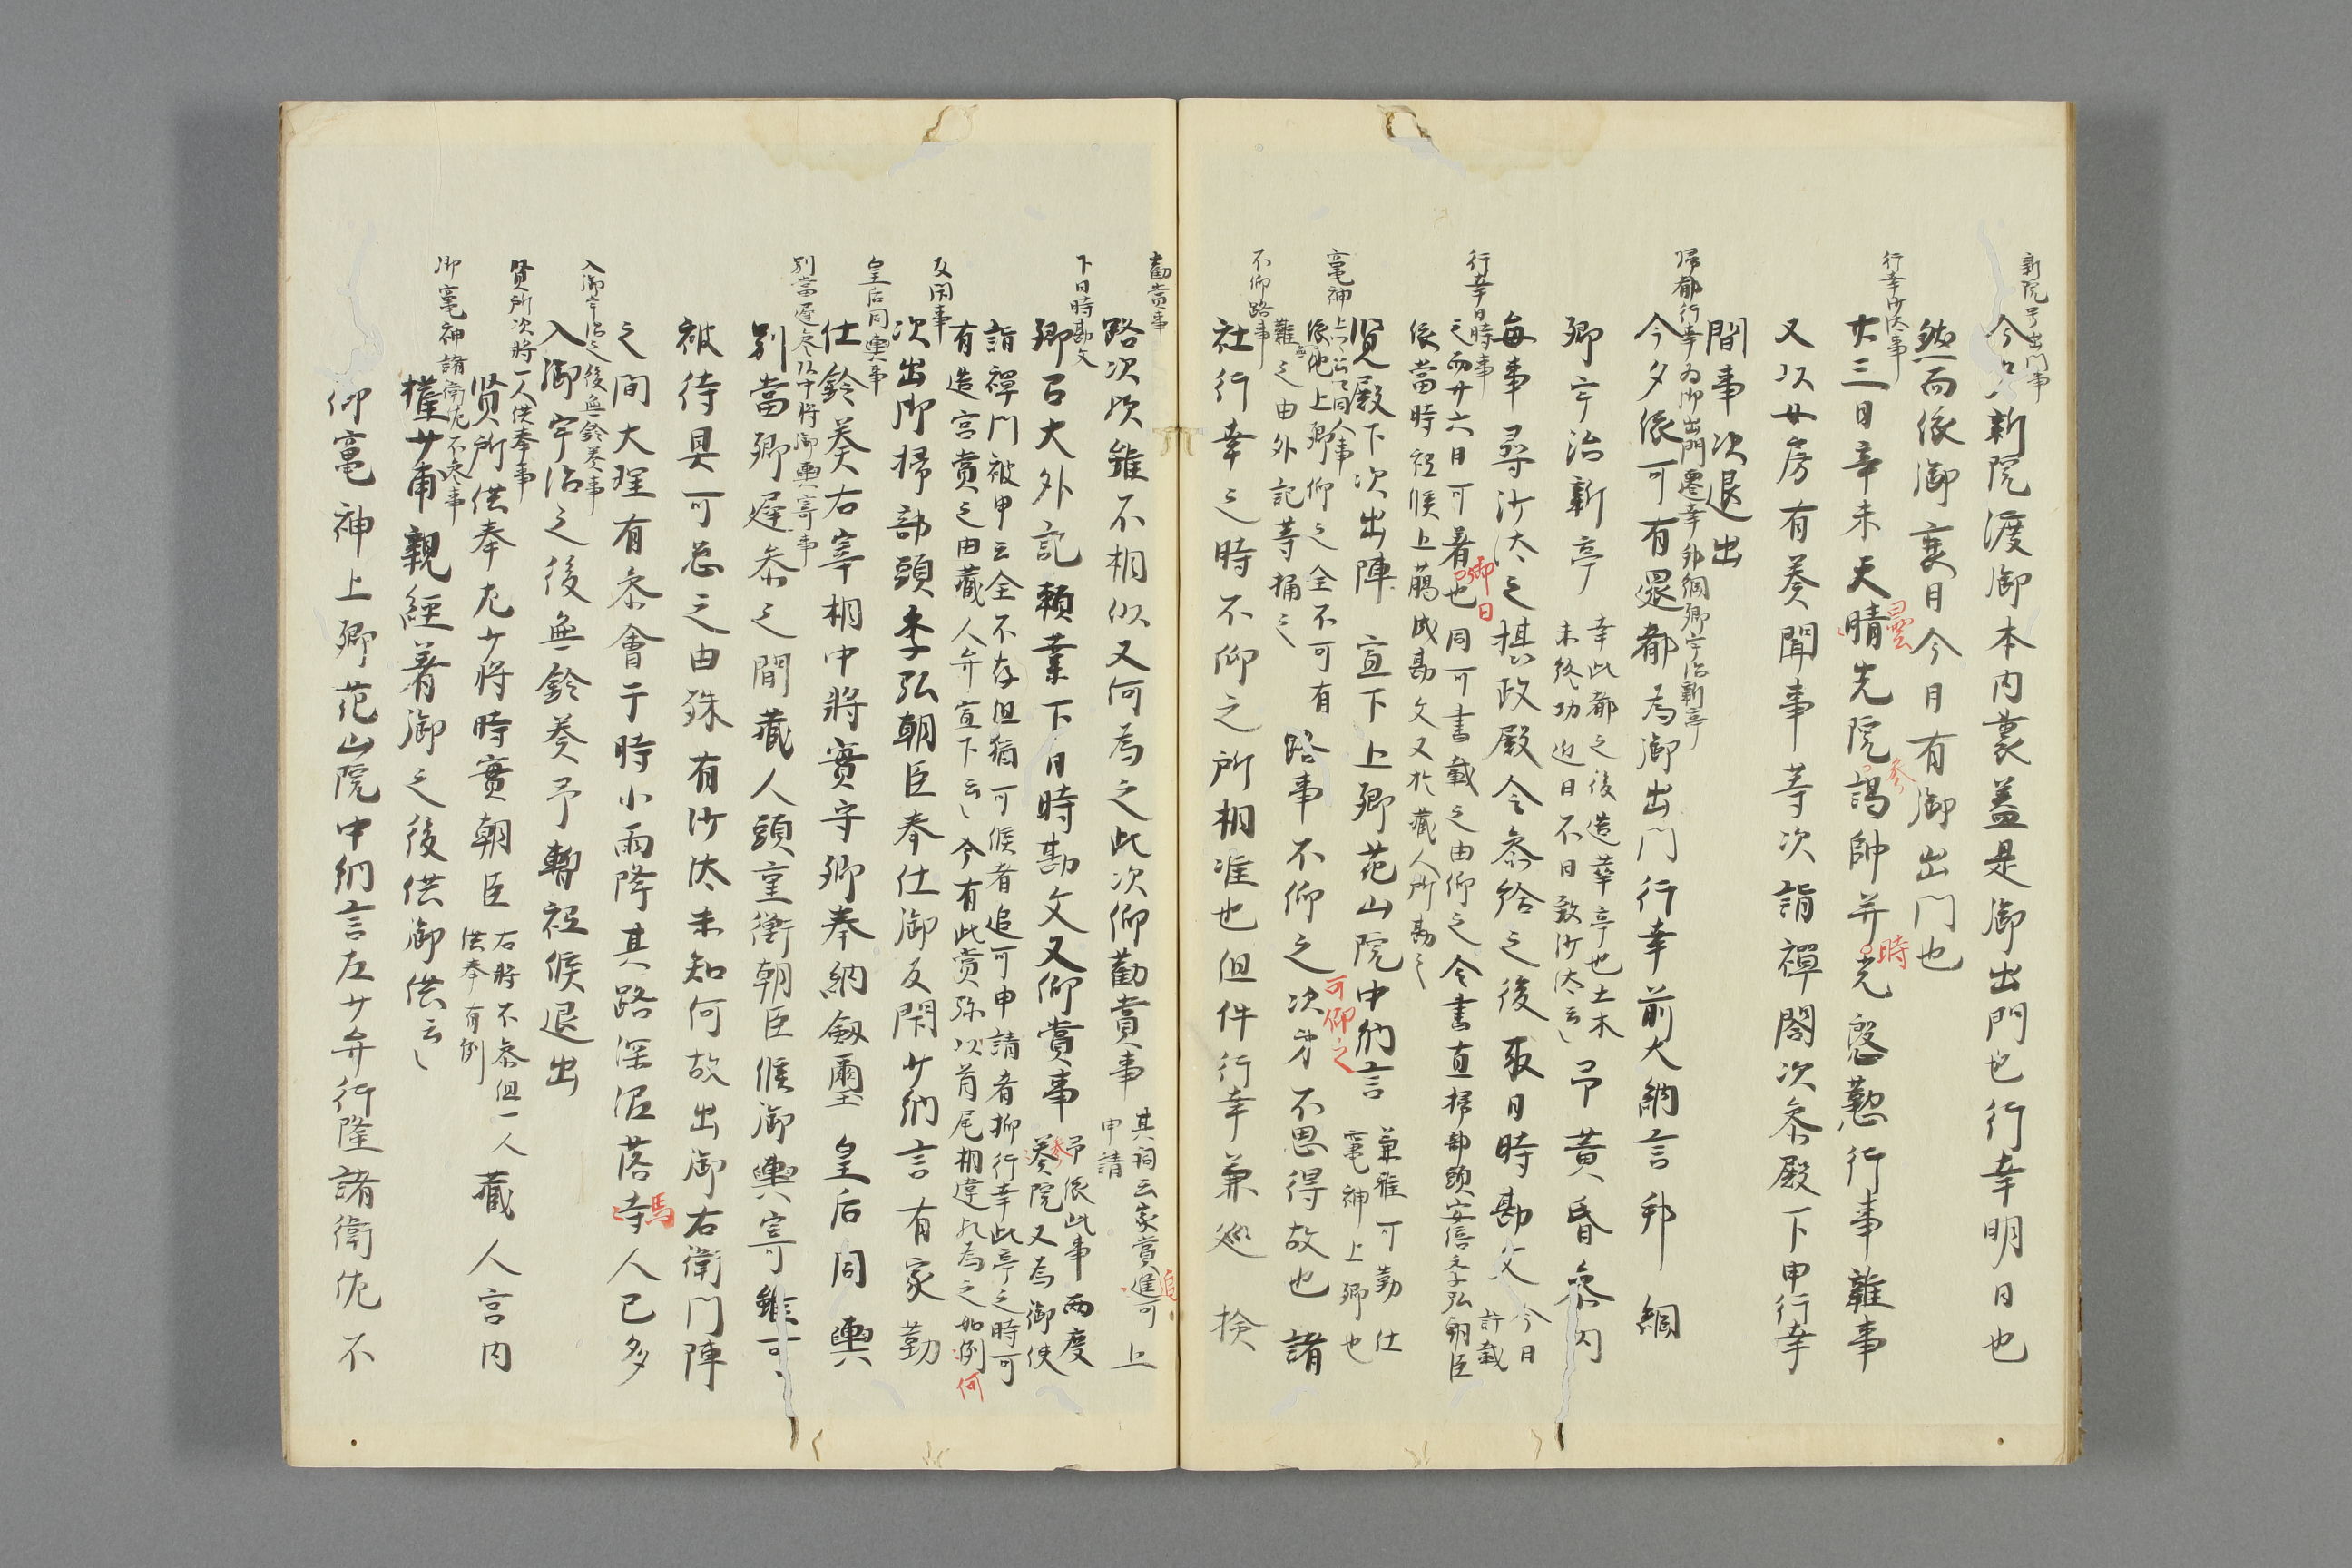 新院予出門事
新院渡御本内裏蓋是御出門也行幸明日也
然而依御衰月今月有御出門也
行幸沙汰事
廿三日辛未天晴先院謁帥并光慇懃行事雜事
曇
参
時
又以女房有奏聞事等次詣禪閤次参殿下申行幸
間事次退出
帰都行幸為御出門遷幸邦綱卿宇治新亭
今夕依可有還都為御出門行幸前大納言邦綱
卿宇治新亭
幸此都之後造華亭也土木
未終功近日不日致沙汰云〻
予黄昏参内
毎事尋沙汰之摂政殿令参給之後取日時勘文
今日
計載
行幸日時事
之而廿六日可着也同可書載之由仰之今書直掃部頭安倍季弘朝臣
御
日
依當時祗候上﨟成勘文又於蔵人所勘之
覧殿下次出陣宣下上卿花山院中納言
兼雅可勤仕
竃神上卿也
依他上卿仰之全不可有
難之由外記等補之
路事不仰之次第不思得故也諸
可仰之
不仰路事
社行幸之時不仰之所相准也但件行幸兼巡撿
勸賞事
路次以雖不相似又何為之此次仰勸賞事
其詞云家賞進可
申請
追
上
下日時勘文
卿召大外記頼業下日時勘文又仰賞事
予依此事両度
奏院又為御使
参
詣禪門被申云全不存但猶可候者追可申請者抑行幸此亭之時可
有造宮賞之由蔵人弁宣下云〻今有此賞弥以首尾相違凡為之如例
何
反閇事
次出御掃部頭季弘朝臣奉仕御反閇少納言有家勤
皇后同輿事
仕鈴奏右宰相中将實守卿奉納劔璽皇后同輿
別當遅参以中将御輿寄事
別當卿遅参之間蔵人頭重衡朝臣候御輿寄雖可
被待具可怠之由殊有沙汰未知何故出御右衛門陣
之間大理有参會于時小雨降其路深泥落寺人已多
馬
入御宇治之後無鈴奏事
入御宇治之後無鈴奏予暫祗候退出
賢所次将一人供奉事
賢所供奉左少将時實朝臣
右将不参但一人
供奉有例
蔵人宮内
御竃神諸衛佐不参事
權少甫親經着御之後供御供云〻
仰竃神上卿花山院中納言左少弁行隆諸衛佐不